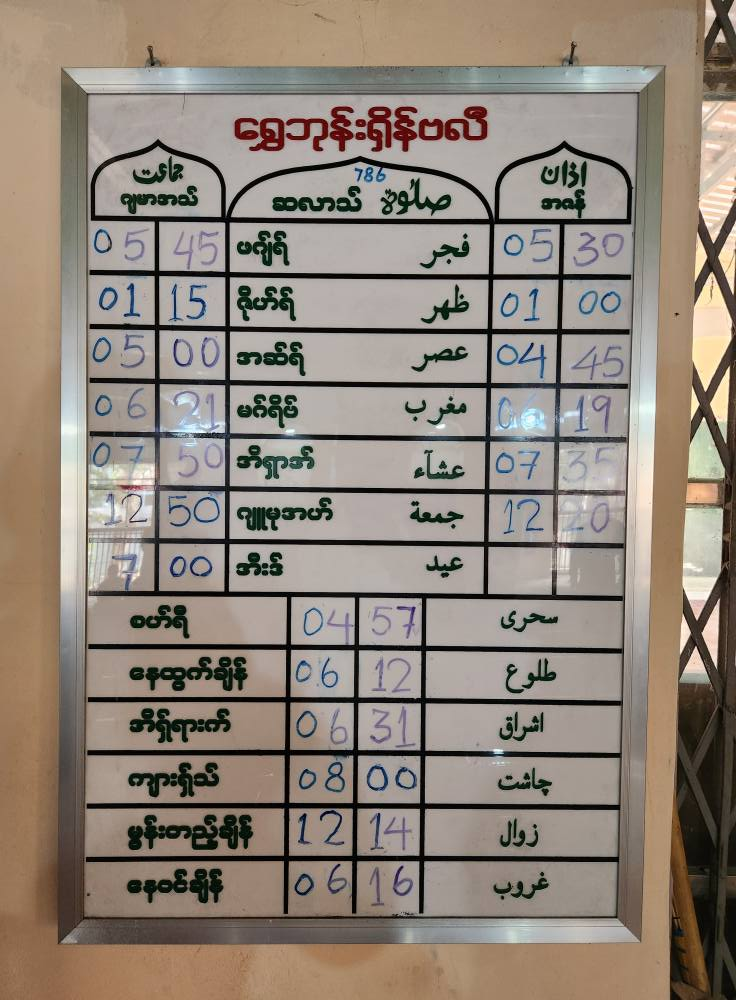 ရွှေဘုန်းရှိန်ဗလီ
جماعت 786 اذان
ဂျမာအသ် ဆလာသ် صلوة အဇန်
05 45 ဖဂျ်ရ် فجر 05 30
01 15 ဇိုဟ်ရ် ظهر 01 00
05 00 အဆ်ရ် عصر 04 45
06 21 မဂ်ရိဗ် مغرب 06 19
07 50 အိရှာအ် عشآء 07 35
12 50 ဂျူမုအဟ် جمعة 12 20
7 00 အီးဒ် عيد
စဟ်ရီ 04 57 سحری
နေထွက်ချိန် 06 12 طلوع
အိရှ်ရားက် 06 31 اشراق
ကျားရှ်သ် 08 00 چاشت
မွန်းတည့်ချိန် 12 14 زوال
နေဝင်ချိန် 06 16 غروب